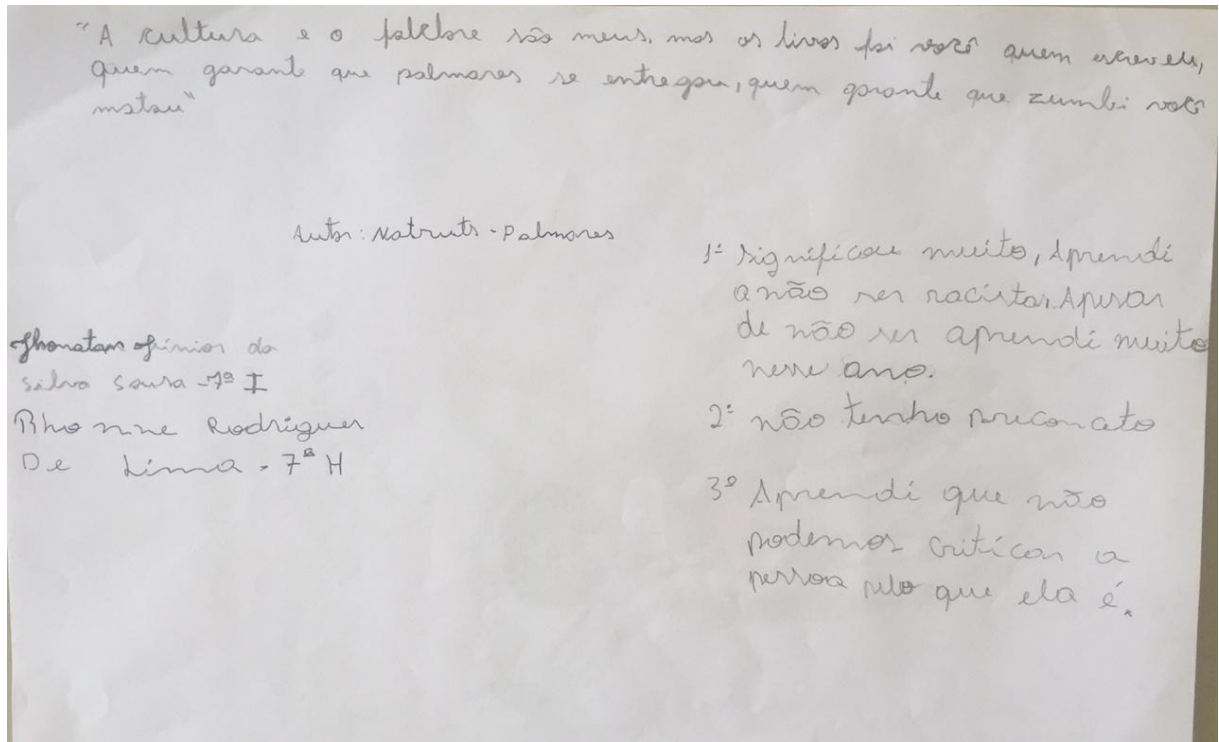 "A cultura e o folclore são meus, mas os livros foi você quem escreveu,
quem garante que palmares se entregou, quem garante que zumbi você
matou"
Autor: Natruts - Palmares
Jhonatan Júnior da
Silva Sousa - 7º I
Rhonine Rodrigues
De Lima - 7ª H
1º Significou muito, Aprendi
a não ser racista, Apesar
de não ser aprendi muito
nesse ano.
2º não tenho preconcato
3º Aprendi que não
podemos criticar a
pessoa pelo que ela é.